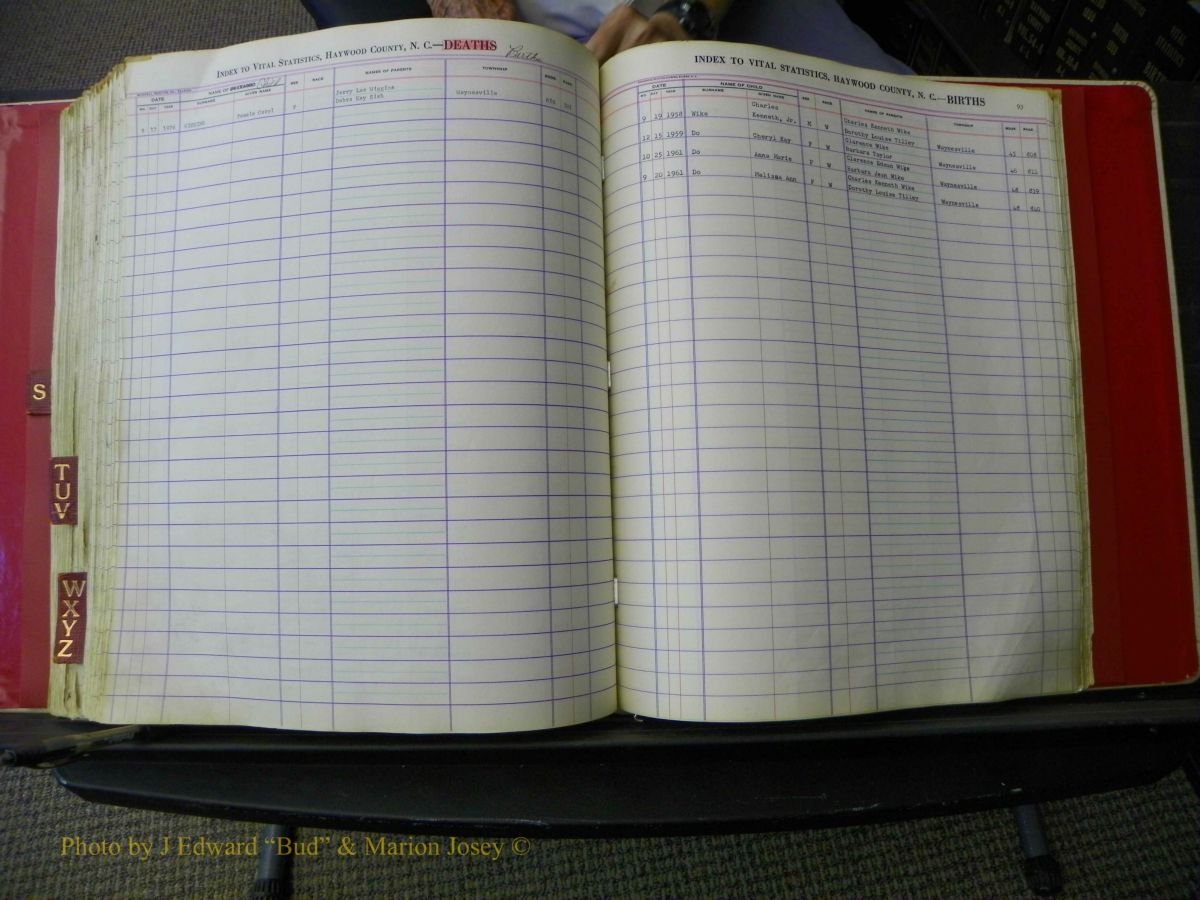 INDEX TO VITAL STATISTICS, HAYWOOD COUNTY, N. C.—DEATHS Births
DATE NAME OF DECEASED Child SEX RACE NAMES OF PARENTS TOWNSHIP BOOK PAGE
MO. DAY YEAR SURNAME GIVEN NAME
Jerry Lee Wiggins
17 Pamela Caryl F Debra Kay Rish Waynesville
INDEX TO VITAL STATISTICS, HAYWOOD COUNTY, N. C.—BIRTHS 97
DATE NAME OF CHILD SEX RACE NAMES OF PARENTS TOWNSHIP BOOK PAGE
MO. DAY YEAR SURNAME GIVEN NAME
Charles Charles Kenneth Wike
9 19 1958 Wike Kenneth, Jr. M W Dorothy Louise Tilley Waynesville 45 808
Clarence Wike
12 15 1959 Do Cheryl Kay F W Barbara Taylor Waynesville 46 812
Clarence Edson Wike
10 25 1961 Do Anna Marie F W Barbara Jean Wike Waynesville 48 839
Charles Kenneth Wike
9 20 1961 Do Melissa Ann F W Dorothy Louise Tilley Waynesville 48 840
S
TUV
WXYZ
Photo by J Edward “Bud” & Marion Josey ©